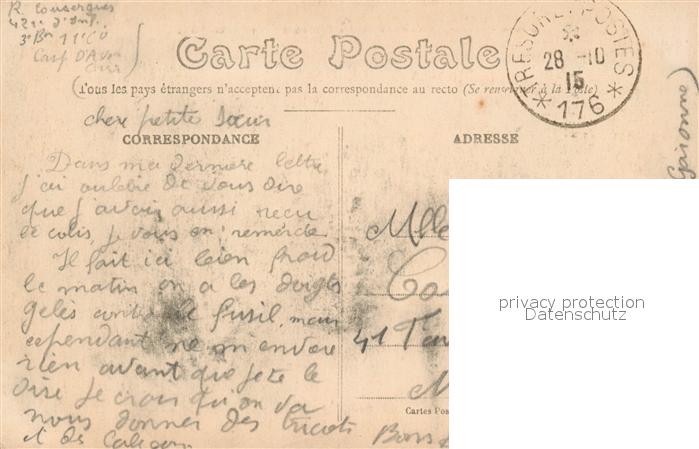 R. Couserques
421e d'Inf.
3e Bon 11e Cie
Carte Postale
TRESOR ET POSTES
28 -10
15
* 176 *
(Tous les pays étrangers n'acceptent pas la correspondance au recto (Se renseigner à la Poste)
chere petite soeur
CORRESPONDANCE
ADRESSE
Dans ma derniere lettre
j'ai oublié de vous dire
que j'avais aussi recu
le colis, je vous en remercie
Il fait ici bien froid
le matin on a les doigts
gelés contre le fusil, mais
cependant ne m'envoie
rien avant que je te le
dise je crois qu'on va
nous donner des tricots
et des calecons
Mlle
41
Cartes Pos
Bons
Garonne)
privacy protection
Datenschutz